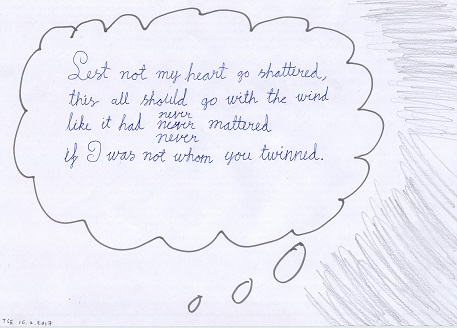 Lest not my heart go shattered,
this all should go with the wind
never
like it had never mattered
never
if I was not whom you twinned.